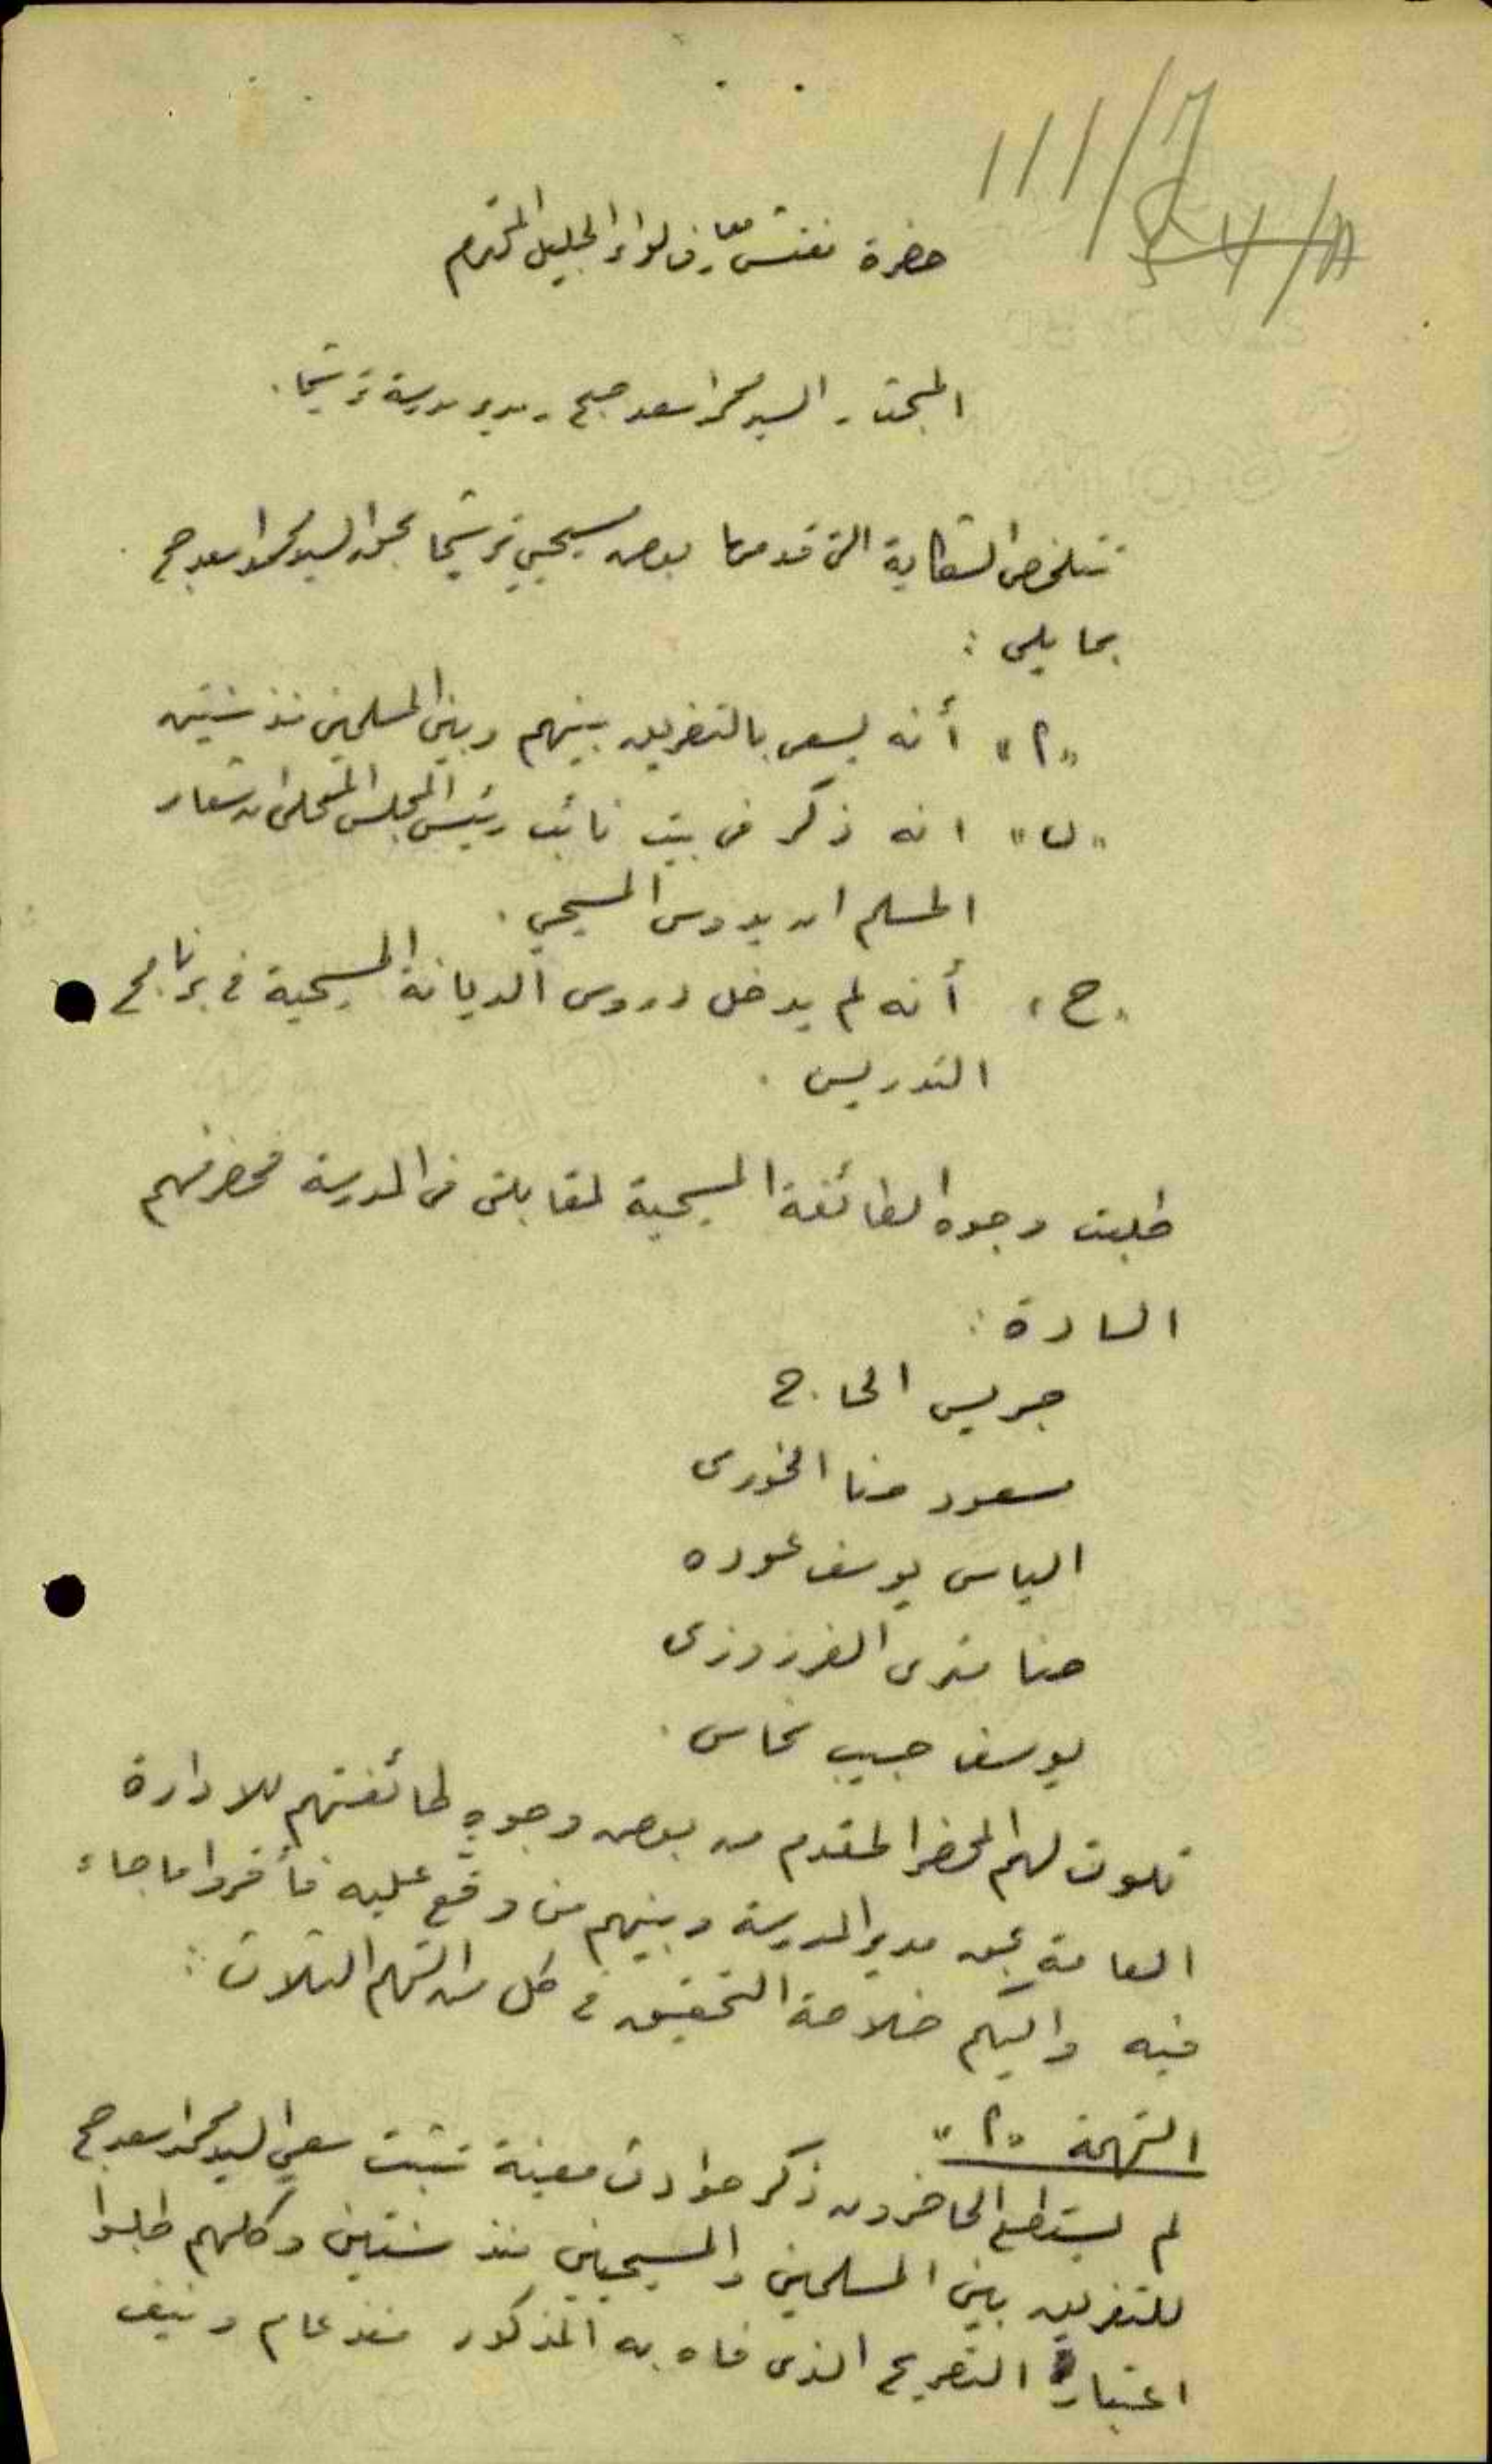 111/7
حضرة مفتش معارف لواء الجليل المحترم
المبحث - السيد محمد اسعد صبح - مدير مدرسة ترشيحا .
تتلخص الشكاية التي قدمها بعض مسيحيي ترشيحا بحق السيد محمد اسعد صبح
بما يلي :
"أ" أنه يسعى بالتفريق بينهم وبين المسلمين منذ سنتين
"ب" انه ذكر في بيت نائب رئيس المجلس المحلي ان شعار
المسلم ان يدوس المسيحي .
"ج" أنه لم يدخل دروس الديانة المسيحية في برنامج
التدريس .
طلبت وجوه الطائفة المسيحية لمقابلتي في المدرسة فحضر منهم
السادة :
جريس الحاج
مسعود حنا الخوري
الياس يوسف عوده
حنا متري الفرزوزي
يوسف حبيب نحاس .
تلوت لهم المحضر المقدم من بعض وجوه طائفتهم للادارة
العامة بحق مدير المدرسة وبينهم من وقّع عليه فأقروا ما جاء
فيه واليكم خلاصة التحقيق في كل من التهم الثلاث :
التهمة "أ"
لم يستطع الحاضرون ذكر حوادث معينة تثبت سعي السيد محمد اسعد صبح
للتفريق بين المسلمين والمسيحيين منذ سنتين وكلهم طلبوا
اعتبار التصريح الذي فاه به المذكور منذ عام ونيف